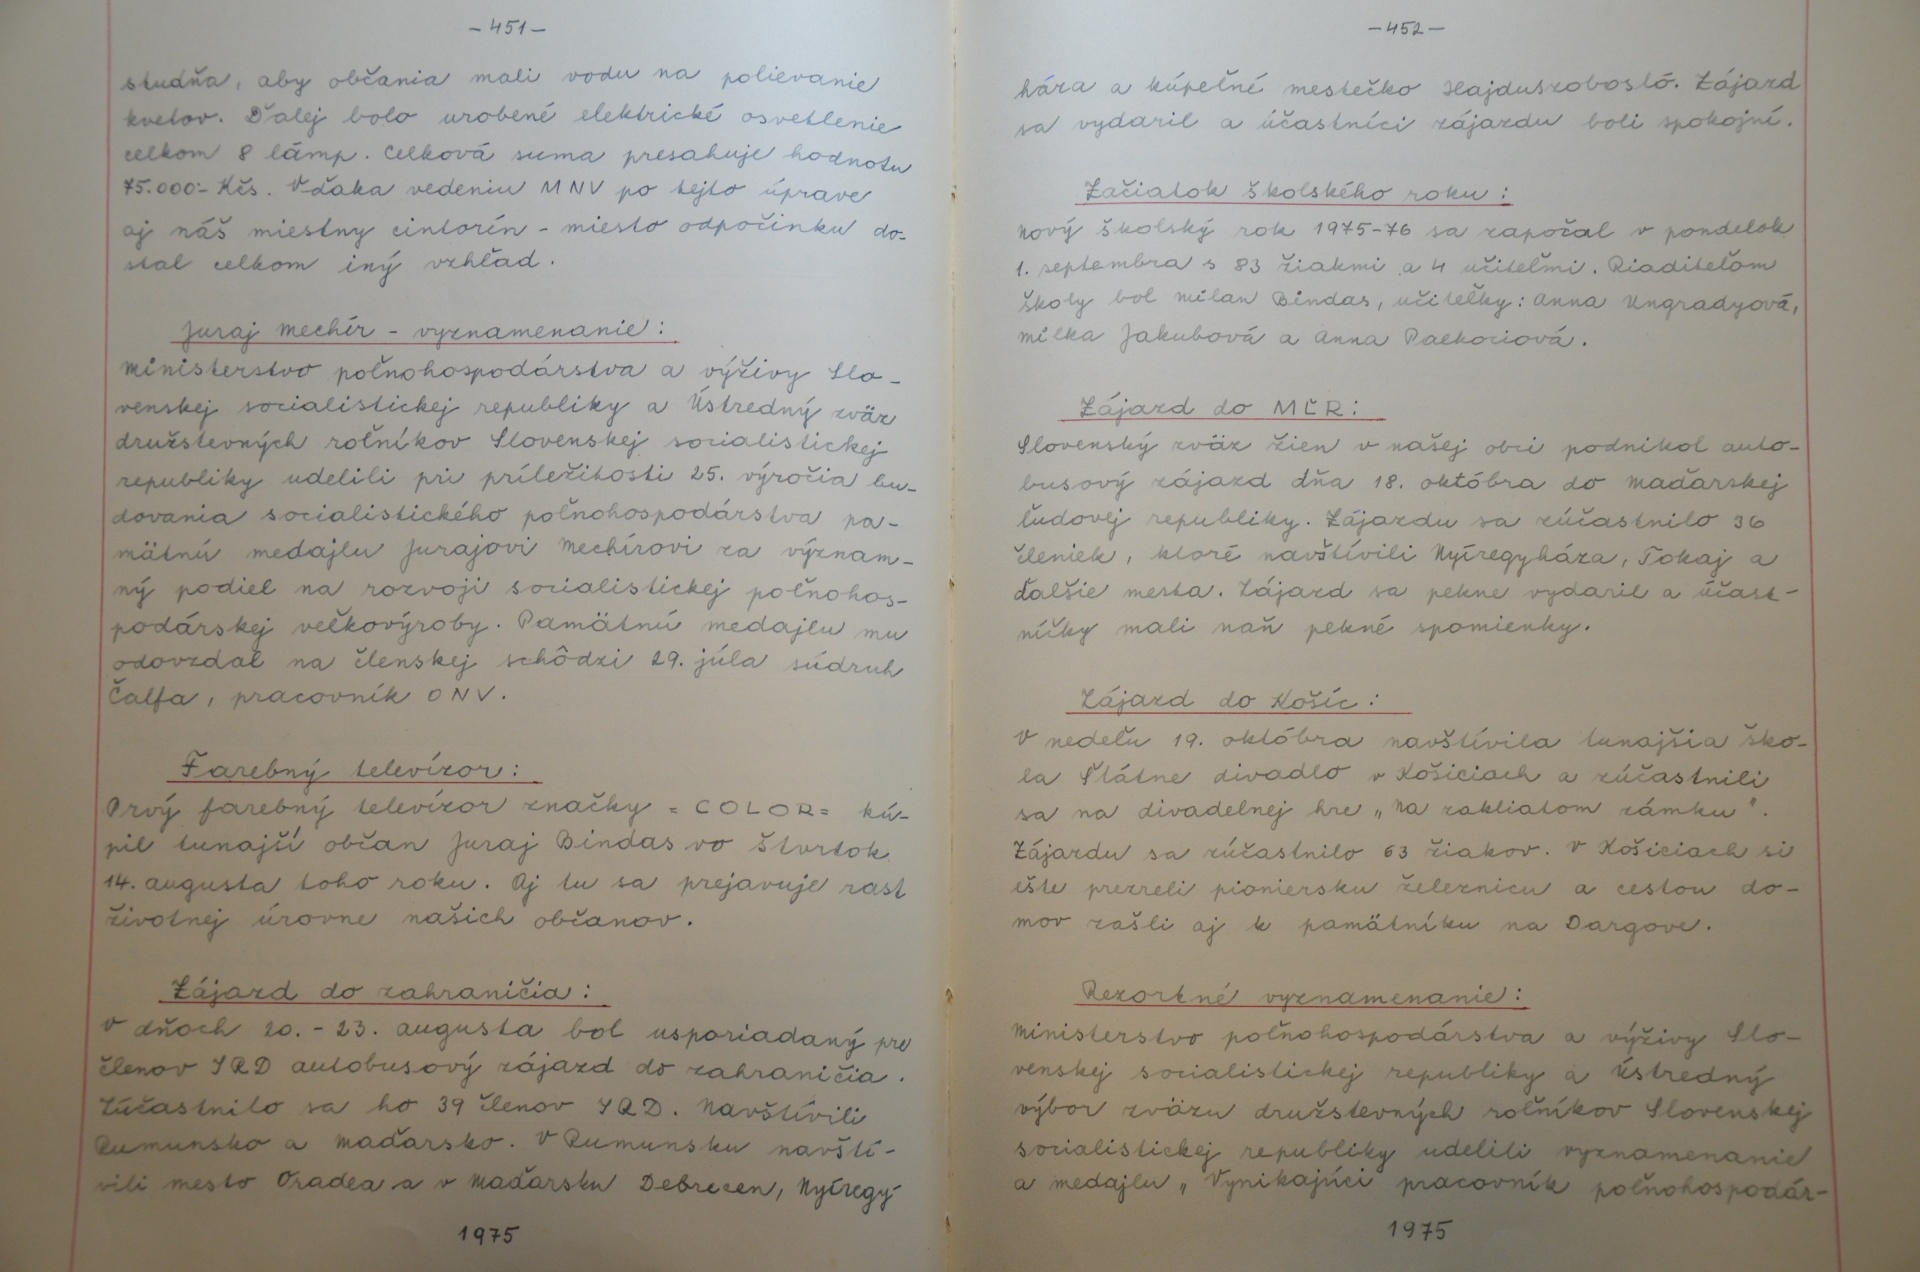 -451-
studňa, aby občania mali vodu na polievanie
kvetov. Ďalej bolo urobené elektrické osvetlenie
celkom 8 lámp. Celková suma presahuje hodnotu
75.000.- Kčs. Vďaka vedeniu MNV po tejto úprave
aj náš miestny cintorín - miesto odpočinku do-
stal celkom iný vzhľad.
Juraj Mechír - vyznamenanie:
Ministerstvo poľnohospodárstva a výživy Slo-
venskej socialistickej republiky a Ústredný zväz
družstevných roľníkov Slovenskej socialistickej
republiky udelili pri príležitosti 25. výročia bu-
dovania socialistického poľnohospodárstva pa-
mätnú medajlu Jurajovi Mechírovi za význam-
ný podiel na rozvoji socialistickej poľnohos-
podárskej veľkovýroby. Pamätnú medajlu mu
odovzdal na členskej schôdzi 29. júla súdruh
Čalfa, pracovník ONV.
Farebný televízor:
Prvý farebný televízor značky =COLOR= kú-
pil tunajší občan Juraj Bindas vo štvrtok
14. augusta toho roku. Aj tu sa prejavuje rast
životnej úrovne našich občanov.
Zájazd do zahraničia:
V dňoch 20.-23. augusta bol usporiadaný pre
členov JRD autobusový zájazd do zahraničia.
Zúčastnilo sa ho 39 členov JRD. Navštívili
Rumunsko a Maďarsko. V Rumunsku navští-
vili mesto Oradea a v Maďarsku Debrecen, Nyíregy-
1975
-452-
háza a kúpeľné mestečko Hajduszobosló. Zájazd
sa vydaril a účastníci zájazdu boli spokojní.
Začiatok školského roku:
Nový školský rok 1975-76 sa započal v pondelok
1. septembra s 83 žiakmi a 4 učiteľmi. Riaditeľom
školy bol Milan Bindas, učiteľky: Anna Ungradyová,
Milka Jakubová a Anna Paľkociová.
Zájazd do MĽR:
Slovenský zväz žien v našej obci podnikol auto-
busový zájazd dňa 18. októbra do Maďarskej
ľudovej republiky. Zájazdu sa zúčastnilo 36
členiek, ktoré navštívili Nyíregyháza, Tokaj a
ďalšie mesta. Zájazd sa pekne vydaril a účast-
níčky mali naň pekné spomienky.
Zájazd do Košíc:
V nedeľu 19. októbra navštívila tunajšia ško-
la Štátne divadlo v Košiciach a zúčastnili
sa na divadelnej hre „Na zakliatom zámku".
Zájazdu sa zúčastnilo 63 žiakov. V Košiciach si
ešte prezreli pioniersku železnicu a cestou do-
mov zašli aj k pamätníku na Dargove.
Rezortné vyznamenanie:
Ministerstvo poľnohospodárstva a výživy Slo-
venskej socialistickej republiky a Ústredný
výbor zväzu družstevných roľníkov Slovenskej
socialistickej republiky udelili vyznamenanie
a medajlu „Vynikajúci pracovník poľnohospodár-
1975